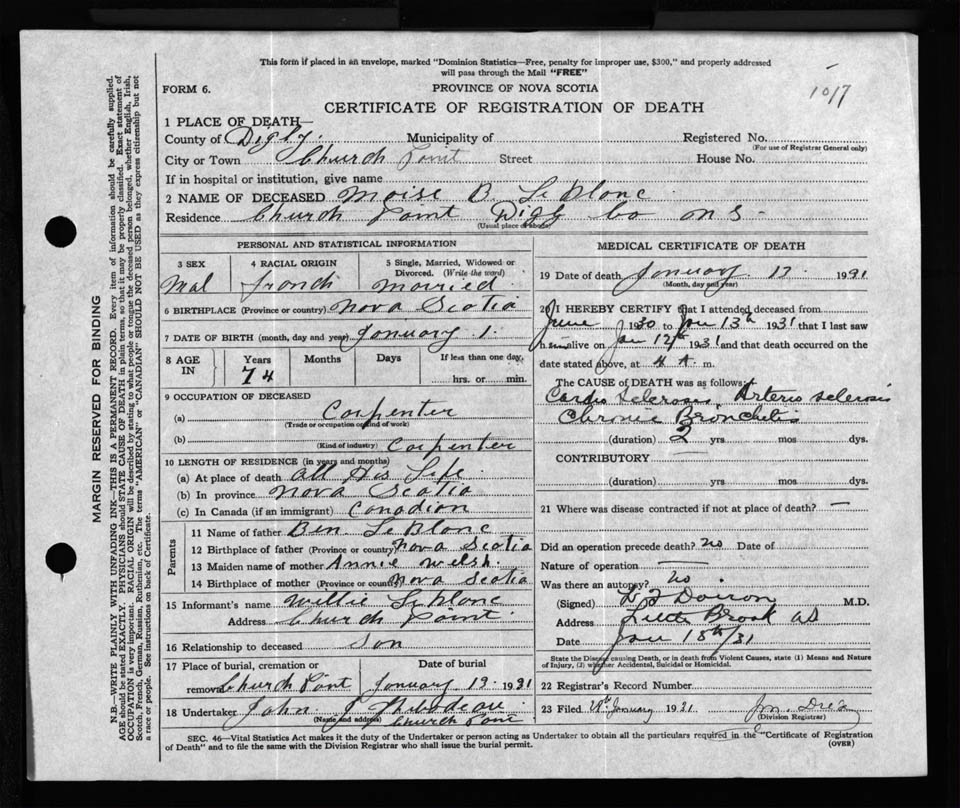 This form if placed in an envelope, marked "Dominion Statistics—Free, penalty for improper use, $300," and properly addressed
will pass through the Mail "FREE"
1017
FORM 6.
PROVINCE OF NOVA SCOTIA
CERTIFICATE OF REGISTRATION OF DEATH
1 PLACE OF DEATH—
County of Digby. Municipality of Registered No.
(For use of Registrar General only)
City or Town Church Point Street House No.
If in hospital or institution, give name
2 NAME OF DECEASED Moise B. LeBlanc
Residence Church Point Digg Co N S
(Usual place of abode)
PERSONAL AND STATISTICAL INFORMATION
3 SEX
Mal
4 RACIAL ORIGIN
french
5 Single, Married, Widowed or
Divorced. (Write the word)
married
6 BIRTHPLACE (Province or country) Nova Scotia
7 DATE OF BIRTH (month, day and year) January 1.
8 AGE
IN
Years
74
Months
Days
If less than one day,
hrs. or min.
9 OCCUPATION OF DECEASED
(a) Carpenter
(Trade or occupation or kind of work)
(b) Carpenter
(Kind of industry)
10 LENGTH OF RESIDENCE (in years and months)
(a) At place of death all His Life
(b) In province Nova Scotia
(c) In Canada (if an immigrant) Canadian
Parents
11 Name of father Ben LeBlanc
12 Birthplace of father (Province or country) Nova Scotia
13 Maiden name of mother Annie Welsh
14 Birthplace of mother (Province or country) Nova Scotia
15 Informant's name Willie LeBlanc
Address Church Point
16 Relationship to deceased Son
17 Place of burial, cremation or
Date of burial
removal Church Point January 19 1931
18 Undertaker John J Thibodeau
(Name and address) Church Point
MEDICAL CERTIFICATE OF DEATH
19 Date of death January 17 1931
(Month, day and year)
20 I HEREBY CERTIFY that I attended deceased from
June 1930 to Jan 13th 1931 that I last saw
him alive on Jan 12th 1931 and that death occurred on the
date stated above, at 4 A. m.
The CAUSE of DEATH was as follows:
Cardio Sclerosis Arterio sclerosis
Chronic Bronchitis
(duration) 2 yrs mos dys.
CONTRIBUTORY
(duration) yrs mos dys.
21 Where was disease contracted if not at place of death? —
Did an operation precede death? No Date of
Nature of operation —
Was there an autopsy? No.
(Signed) Doiron M.D.
Address Little Brook
Date Jan 18th/31
State the Disease causing Death, or in death from Violent Causes, state (1) Means and Nature
of Injury, (2) whether Accidental, Suicidal or Homicidal.
22 Registrar's Record Number
23 Filed January 1931
(Division Registrar)
SEC. 46—Vital Statistics Act makes it the duty of the Undertaker or person acting as Undertaker to obtain all the particulars required in the "Certificate of Registration
of Death" and to file the same with the Division Registrar who shall issue the burial permit.
(OVER)
MARGIN RESERVED FOR BINDING
N.B.—WRITE PLAINLY WITH UNFADING INK—THIS IS A PERMANENT RECORD. Every item of information should be carefully supplied.
AGE should be stated EXACTLY. PHYSICIANS should STATE CAUSE OF DEATH in plain terms, so that it may be properly classified. Exact statement of
OCCUPATION is very important. RACIAL ORIGIN will be described by stating to what people or tongue the deceased person belonged, whether English, Irish,
Scotch, French, German, Russian, Ruthenian, etc. The terms "AMERICAN" or "CANADIAN" SHOULD NOT BE USED as they express citizenship but not
a race or people. See instructions on back of Certificate.